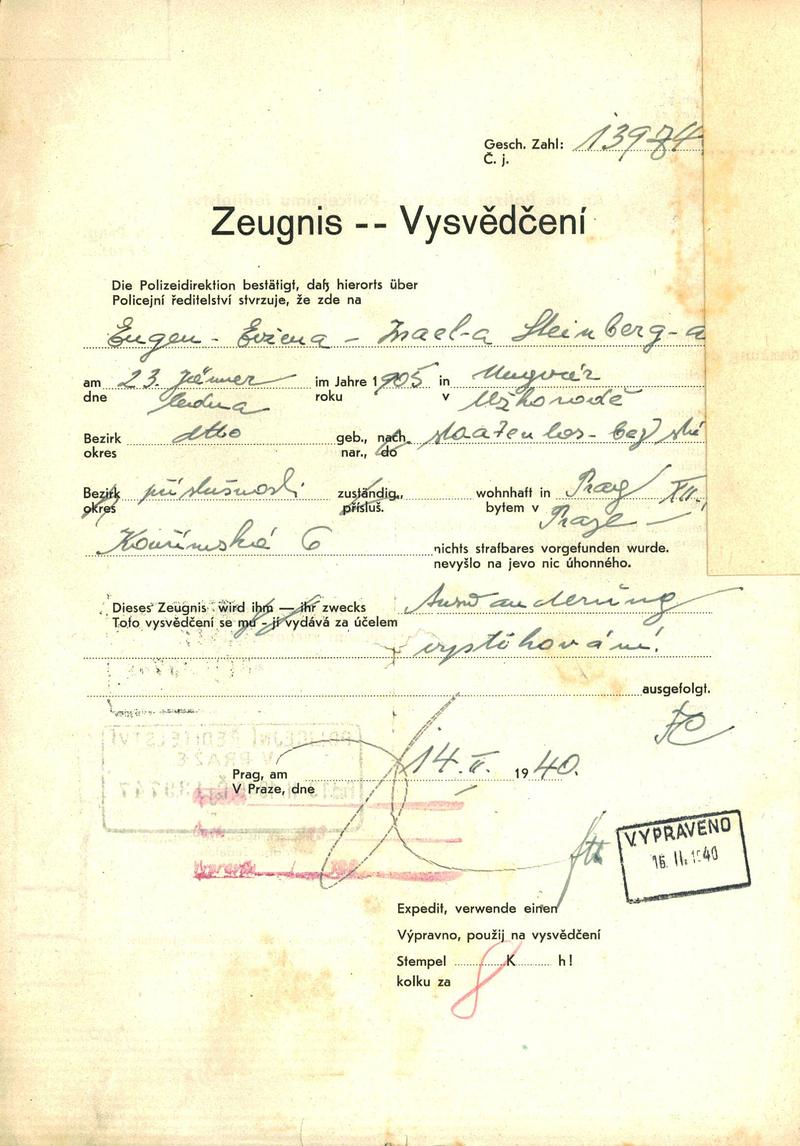 Gesch. Zahl: 13974
Č. j.
Zeugnis -- Vysvědčení
Die Polizeidirektion bestätigt, daß hierorts über
Policejní ředitelství stvrzuje, že zde na
Eugen - Evžena - Israel-a Steinberg-a
am 23. Jänner im Jahre 1905 in Ungvár
dne ledna roku v Užhorodě
Bezirk dtto geb., nach
okres nar., do
Bezirk příslušnosti zuständig, wohnhaft in Prag XII.,
okres přísluš. bytem v Praze
Kouřimská 6 nichts strafbares vorgefunden wurde.
nevyšlo na jevo nic úhonného.
Dieses Zeugnis wird ihm — ihr zwecks Auswanderung
Toto vysvědčení se mu - jí vydává za účelem
vystěhování.
ausgefolgt.
POLICEJNÍ ŘEDITELSTVÍ
V PRAZE
Prag, am 14. II. 1940.
V Praze, dne
VYPRAVENO
16. II. 1940
Expedit, verwende einen
Výpravno, použij na vysvědčení
Stempel 8 K h!
kolku za